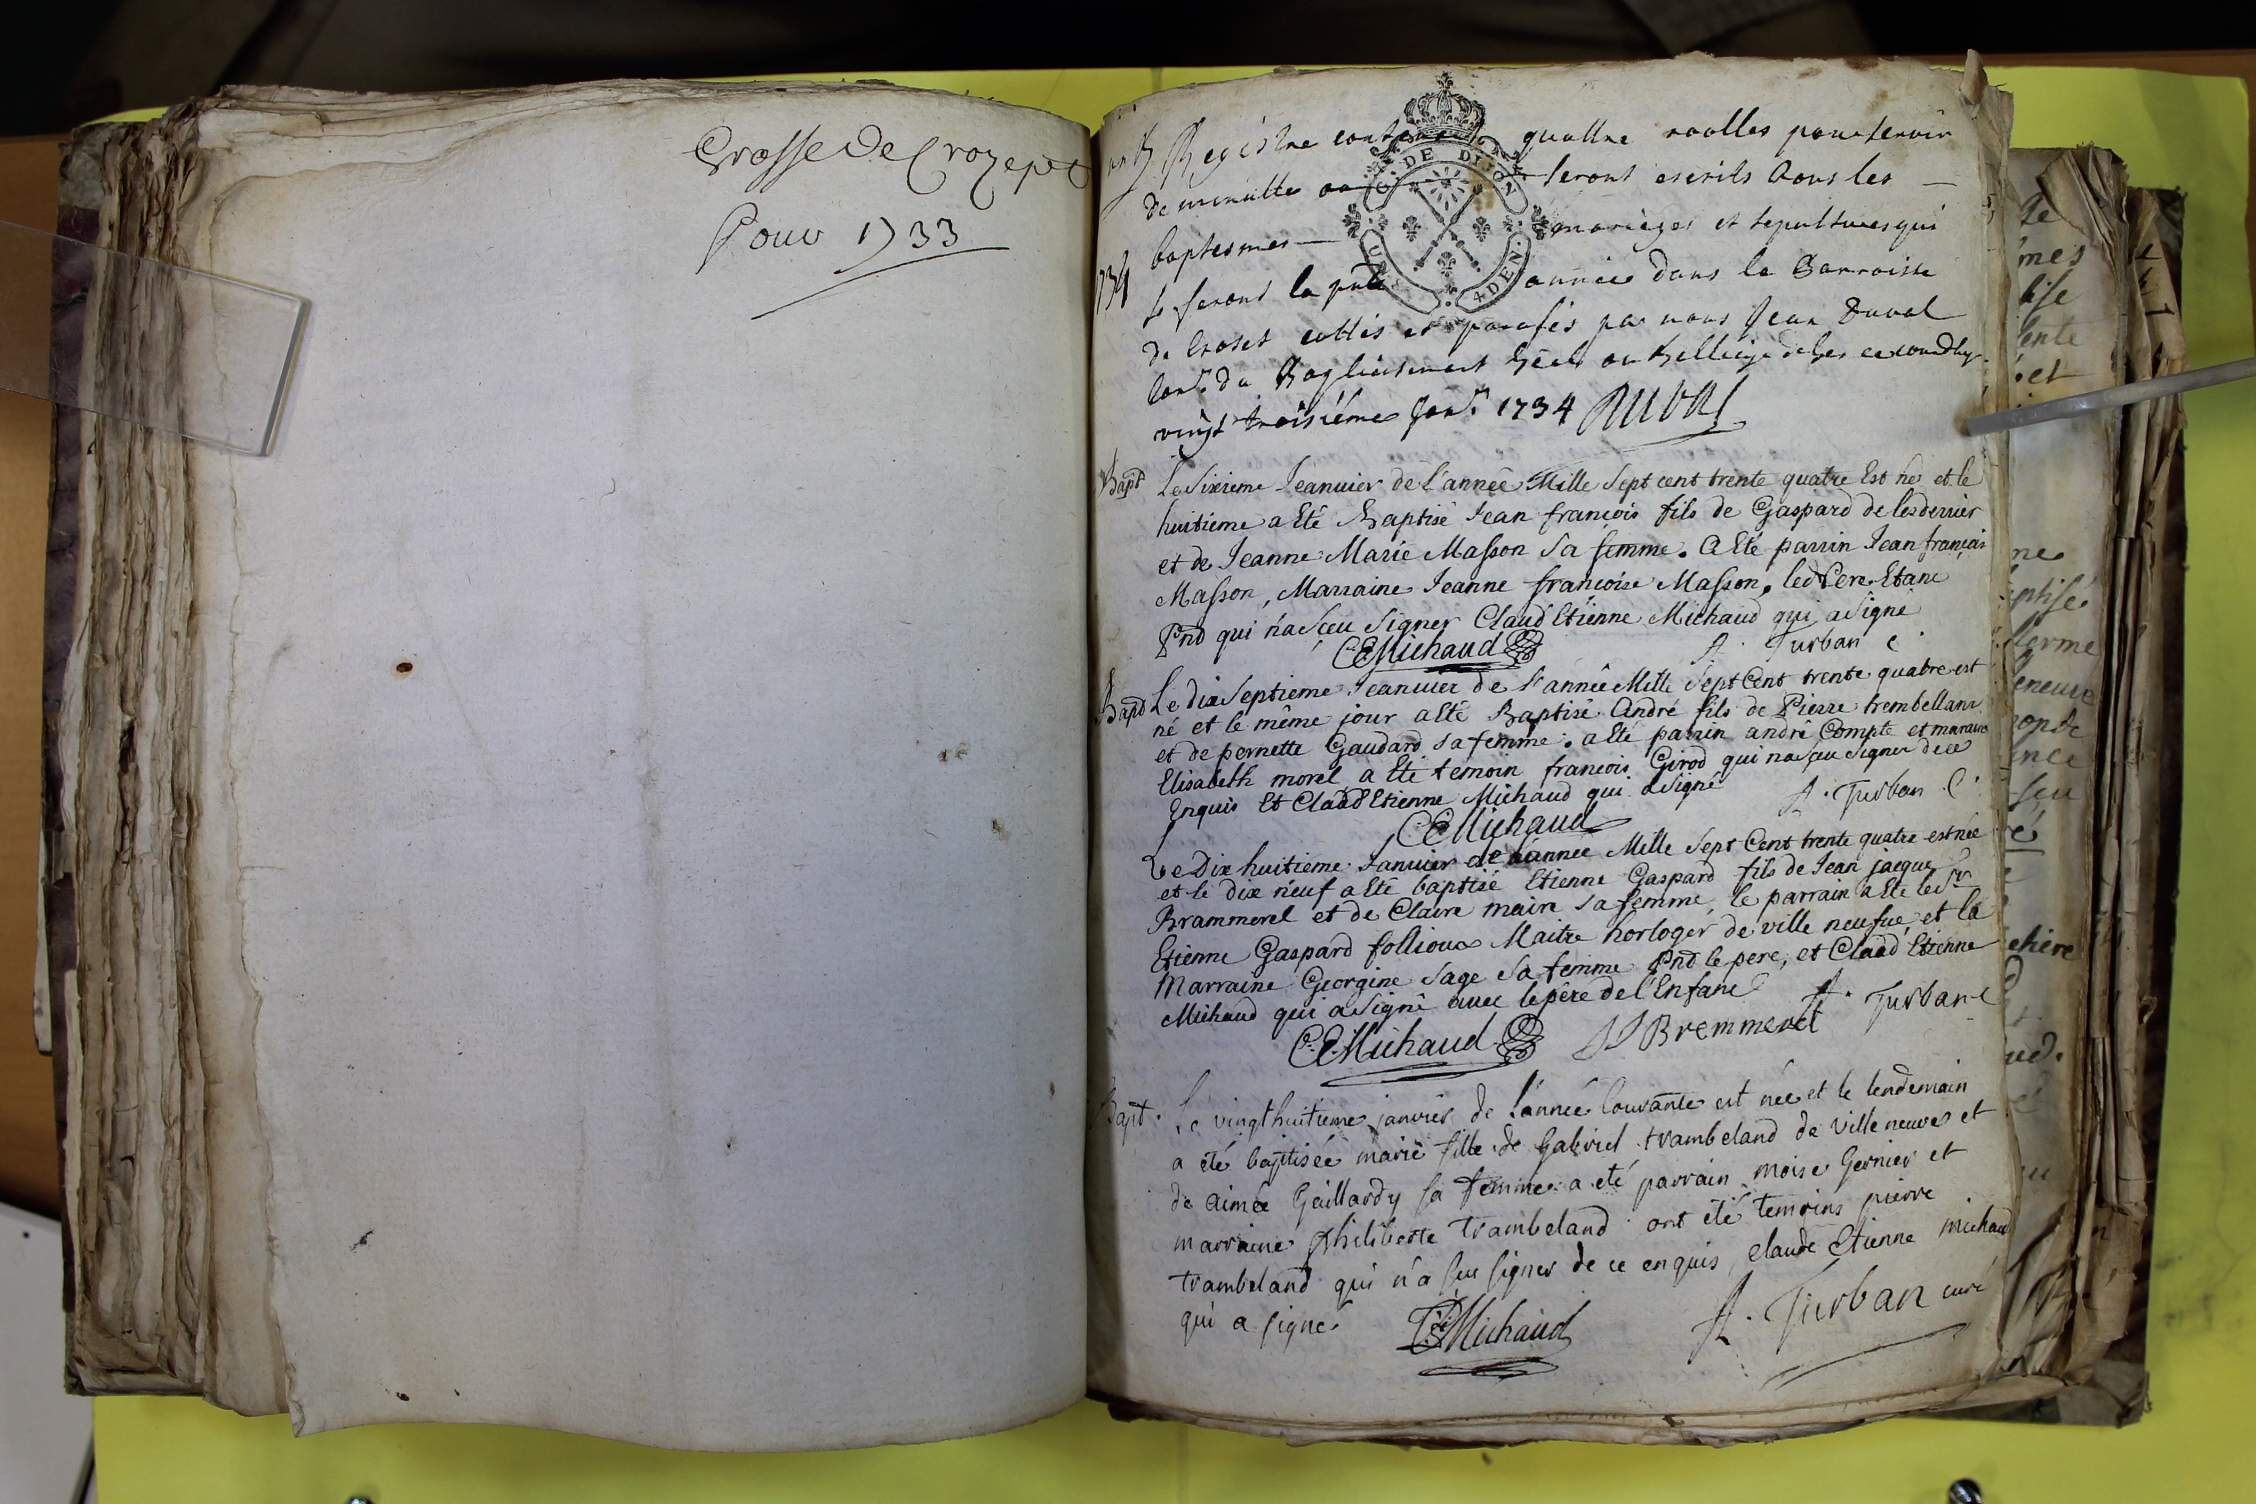 Grosse de Crozept
Pour 1733
Registre contenant quattre roolles pour servir
de minutte ou seront escrits tous les
baptesmes mariages et sepultures qui
1734
se feront la pnte année dans la Parroisse
de Croset cottés et parafés par nous Jean Duval
vingt troisiéme Janr. 1734 Duval
G. DE DIJON
4 DEN.
Bapt
Le Sixieme Jeanvier de l'année Mille Sept cent trente quatre Est né et le
huitieme a Eté Baptisé Jean francois fils de Gaspard de lesdernier
et de Jeanne Marie Masson Sa femme. a Eté parrin Jean françois
Masson, Marraine Jeanne francoise Masson, led Pere Etant
Pnd qui na Sceu Signer Claud Etienne Michaud qui a Signé
CE Michaud A. Turban C.
Bapt
Le dix Septieme Jeanvier de l'année Mille Sept Cent trente quatre est
né et le même jour a Eté Baptisé André fils de Pierre trembelland
et de pernette Gaudard sa femme. a Eté parrin andré Compte et maraine
Elisabeth morel a Eté temoin francois Girod qui na sceu signer de ce
Enquis Et Claud Etienne Michaud qui a Signé A. Turban C.
CE Michaud
Le Dix huitieme Janvier de l'année Mille Sept Cent trente quatre est née
et le dix neuf a Eté baptisé Etienne Gaspard fils de Jean jacque
Brammerel et de Claire maire sa femme, le parrain a Eté le Sr
Etienne Gaspard follioux Maitre horloger de ville neufue, et la
Marraine Georgine Sage Sa femme Pnd le pere, et Claud Etienne
Michaud qui a Signé avec le pére de l'Enfant A. Turban C
CE Michaud JJ Bremmerel
Bapt.
Le vingt huitieme janvier de l'année Courante est née et le lendemain
a été baptisée marie fille de Gabriel trambeland de Ville neuve et
de aimée Gaillardy sa femme a été parrain moise Gernier et
marraine philiberte trambeland ont été temoins pierre
trambeland qui n'a sceu signer de ce enquis, claude Etienne michaud
qui a signé CE Michaud A. Turban curé